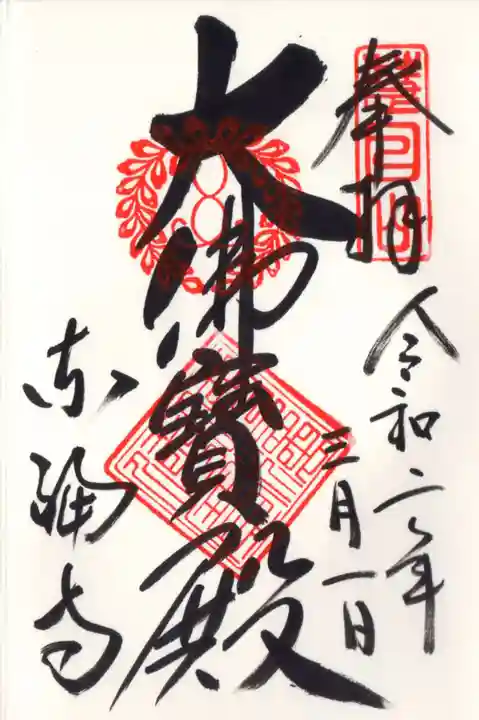 奉拝
令和二年
三月一日
大佛寶殿